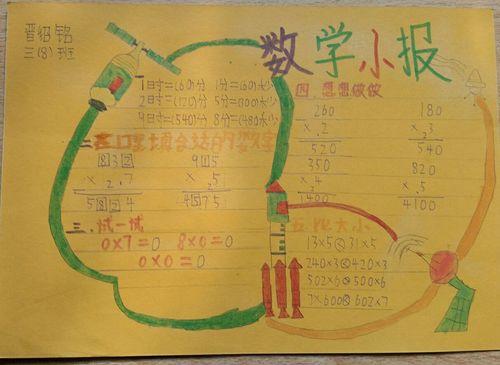 晋绍铭
三(8)班
数学小报
1时=(60)分 1分=(60)秒
2时=(120)分 5分=(300)秒
9时=(540)分 8分=(480)秒
二在口里填合适的数字
832 915
× 2.7 × 5
5824 4575
三.试一试
0×7=0 8×0=0
0×0=0
四 想想做做
260 180
× 2 × 3
520 540
350 820
× 4 × 5
1400 4100
五.比大小
13×5<31×5
240×3<420×3
502×6>500×6
7×600<602×7